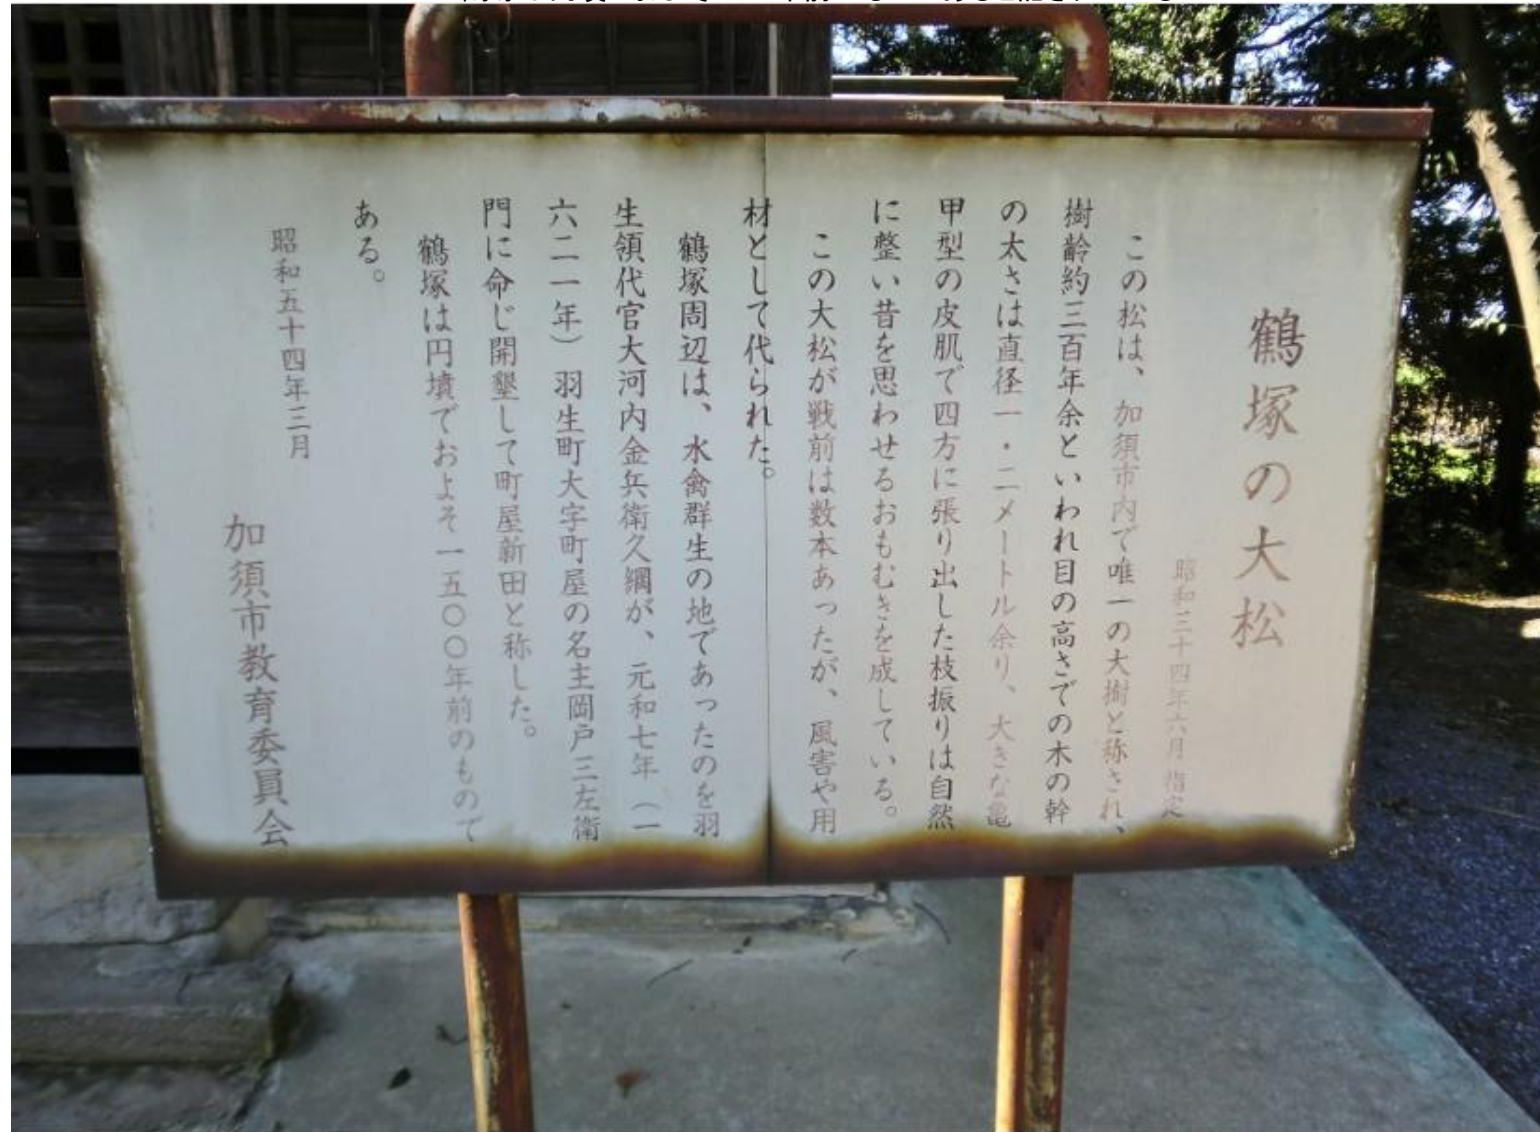 鶴塚の大松
昭和三十四年六月 指定
この松は、加須市内で唯一の大樹と称され、
樹齢約三百年余といわれ目の高さでの木の幹
の太さは直径一・二メートル余り、大きな亀
甲型の皮肌で四方に張り出した枝振りは自然
に整い昔を思わせるおもむきを成している。
この大松が戦前は数本あったが、風害や用
材として代られた。
鶴塚周辺は、水禽群生の地であったのを羽
生領代官大河内金兵衛久綱が、元和七年(一
六二一年)羽生町大字町屋の名主岡戸三左衛
門に命じ開墾して町屋新田と称した。
鶴塚は円墳でおよそ一五〇〇年前のもので
ある。
昭和五十四年三月
加須市教育委員会